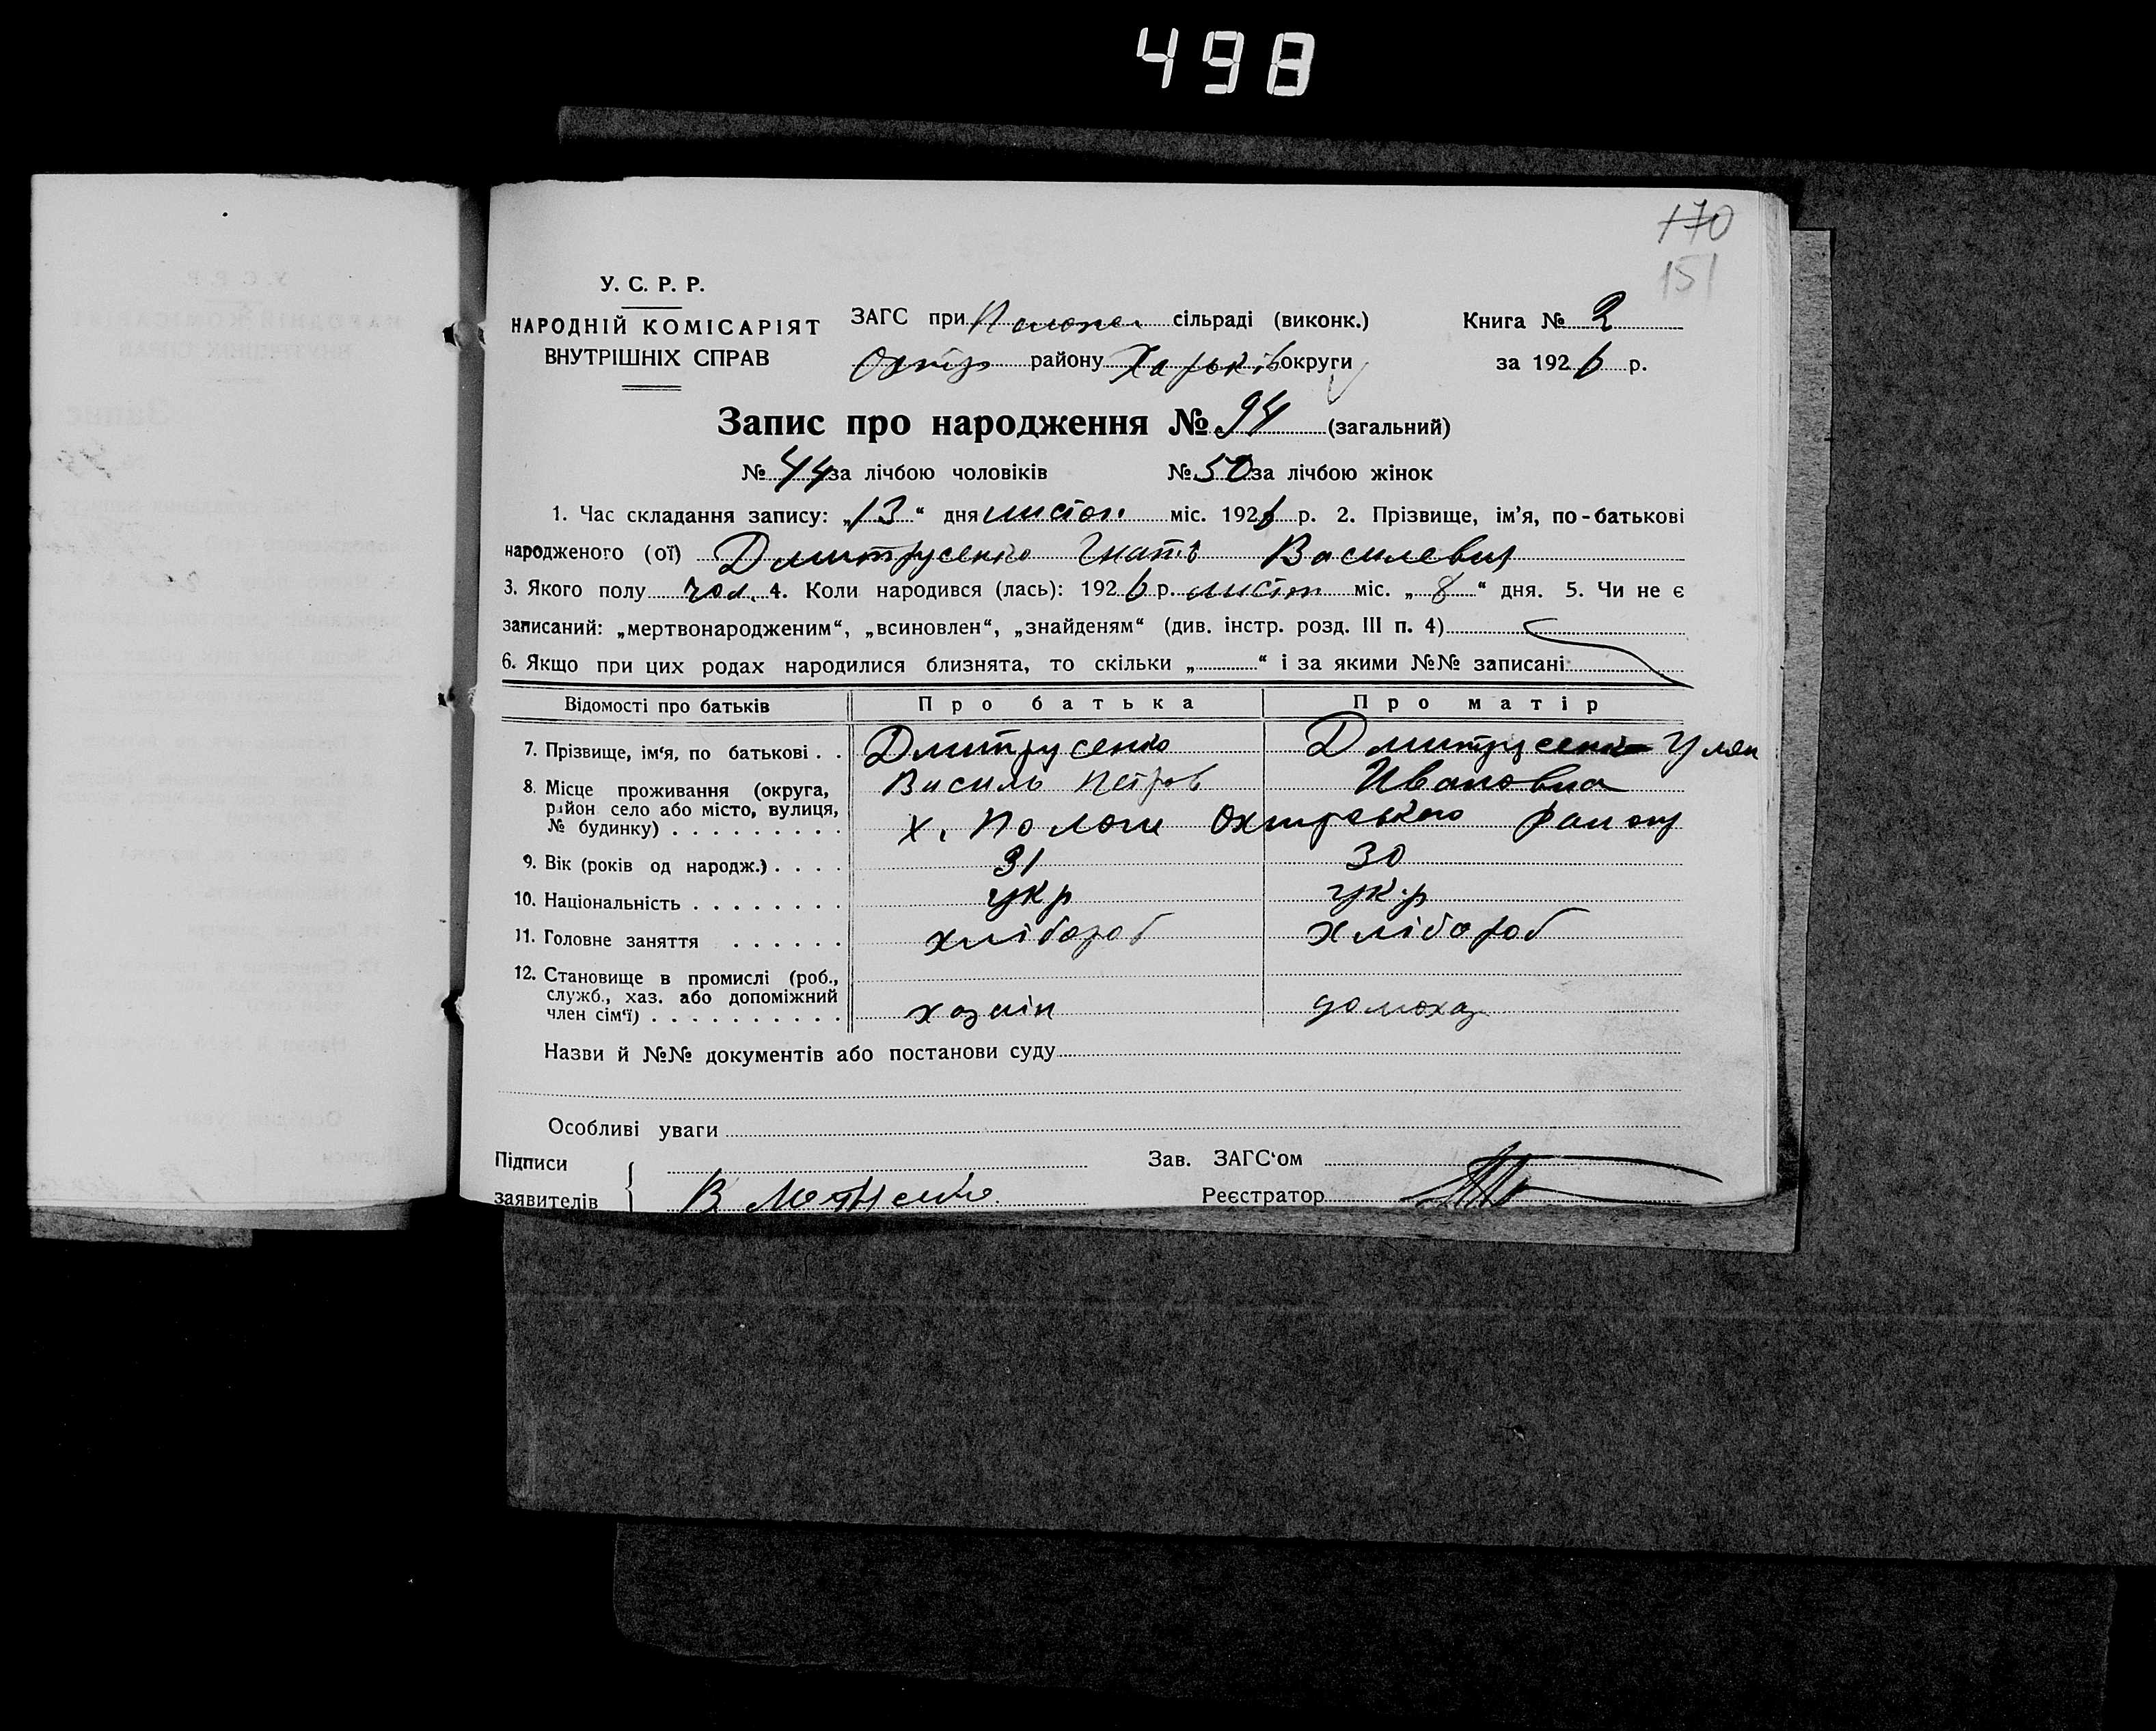 498
170
151
У. С. Р. Р.
НАРОДНІЙ КОМІСАРІЯТ
ВНУТРІШНІХ СПРАВ
ЗАГС при сільраді (виконк.)
Охтир району Харьків округи
Книга № 2
за 1926 р.
Запис про народження № 94 (загальний)
№ 44 за лічбою чоловіків № 50 за лічбою жінок
1. Час складання запису: „13“ дня листоп. міс. 1926 р. 2. Прізвище, ім’я, по-батькові
народженого (ої) Дмитрусенко Гнатів Василевич
3. Якого полу чол. 4. Коли народився (лась): 1926 р. листоп міс. „8“ дня. 5. Чи не є
записаний: „мертвонародженим“, „всиновлен“, „знайденям“ (див. інстр. розд. III п. 4)
6. Якщо при цих родах народилися близнята, то скільки „ “ і за якими №№ записані
Відомості про батьків Про батька Про матір
7. Прізвище, ім‘я, по батькові . . Дмитрусенко Дмитрусенко Улян
Василь Петров Ивановна
8. Місце проживання (округа,
район село або місто, вулиця,
№ будинку) . . . . . . . . . х. Пологи Охтирського району
9. Вік (років од народж.) . . . . 31 30
10. Національність . . . . . . . . укр укр
11. Головне заняття . . . . . . хлібороб хлібороб
12. Становище в промислі (роб.,
служб., хаз. або допоміжний
член сім‘ї) . . . . . . . . . . хозяін домохаз
Назви й №№ документів або постанови суду
Особливі уваги
Підписи
заявителів
Зав. ЗАГС‘ом
Реєстратор